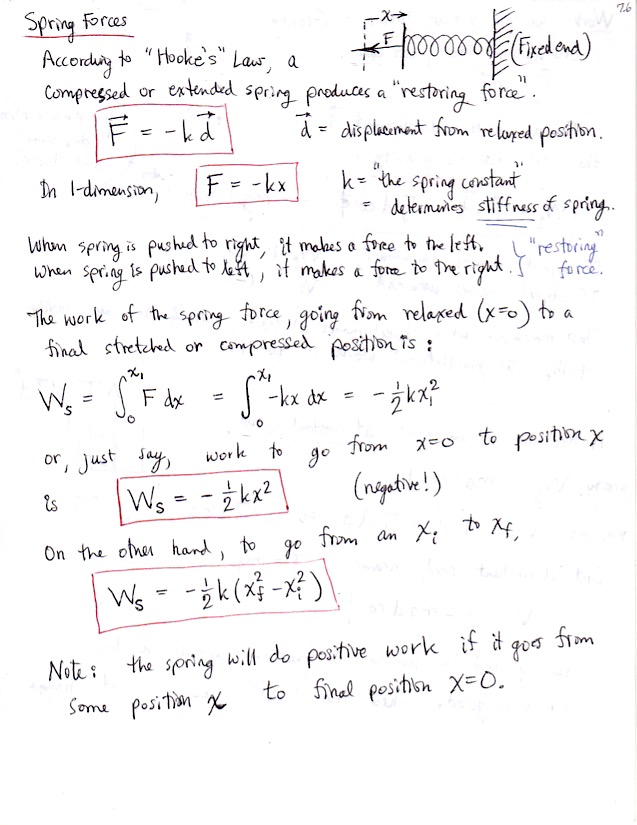 7.6
Spring Forces
x
F
(Fixed end)
According to "Hooke's" Law, a
compressed or extended spring produces a "restoring force".
F⃗ = -k d⃗
d⃗ = displacement from relaxed position.
In 1-dimension,
F = -kx
k = "the spring constant"
= determines stiffness of spring.
When spring is pushed to right, it makes a force to the left.
When spring is pushed to left, it makes a force to the right.
"restoring"
force.
The work of the spring force, going from relaxed (x=0) to a
final stretched or compressed position is:
Wₛ = ∫₀^x₁ F dx = ∫₀^x₁ -kx dx = -½kx₁²
or, just say, work to go from x=0 to position x
is Wₛ = -½kx² (negative!)
On the other hand, to go from an xᵢ to x_f,
Wₛ = -½k(x_f² - xᵢ²)
Note: the spring will do positive work if it goes from
some position x to final position x=0.